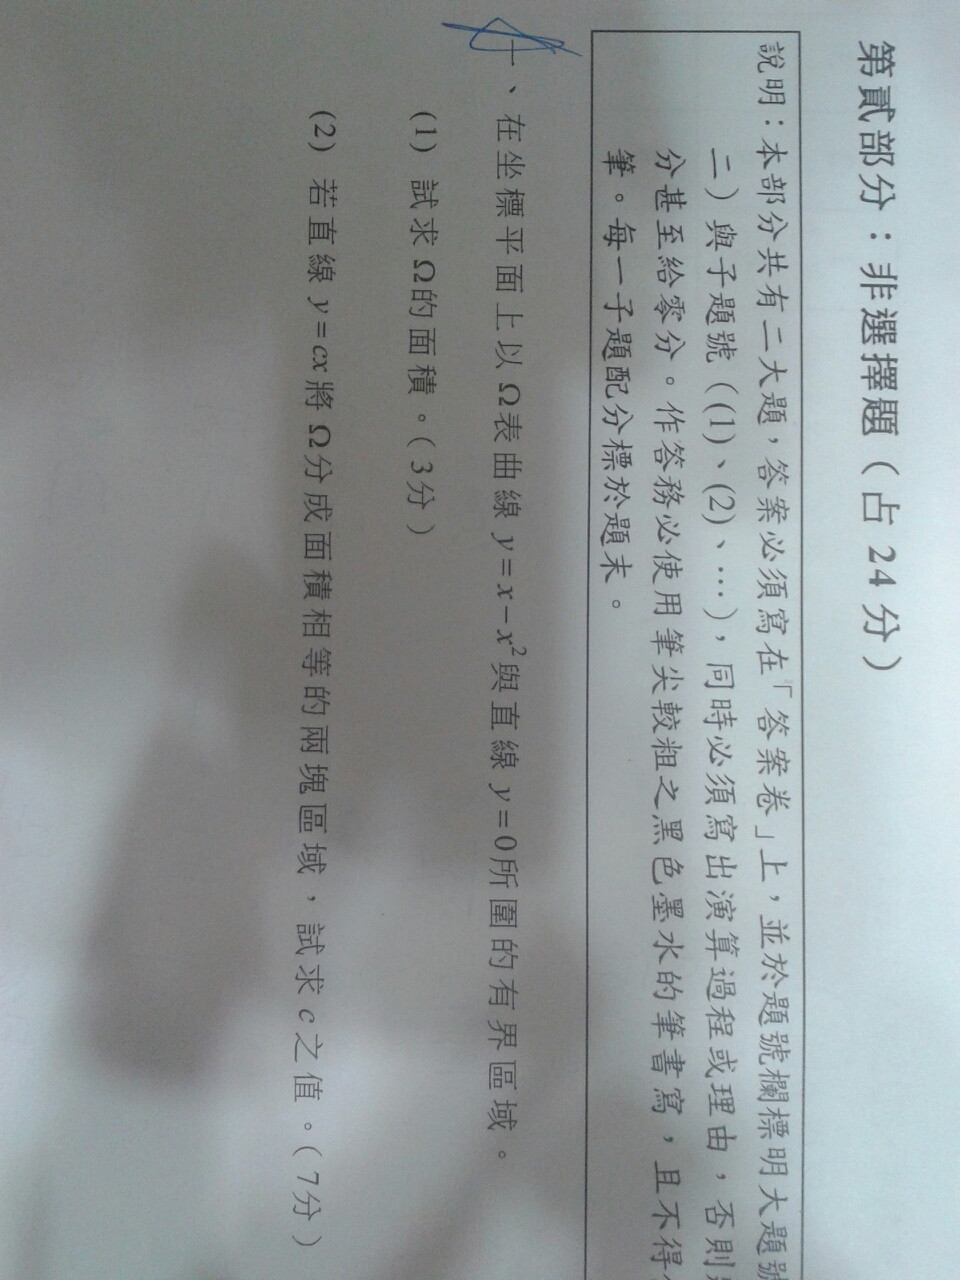 第貳部分：非選擇題（占24分）
說明：本部分共有二大題，答案必須寫在「答案卷」上，並於題號欄標明大題號
二）與子題號（(1)、(2)、…），同時必須寫出演算過程或理由，否則
分甚至給零分。作答務必使用筆尖較粗之黑色墨水的筆書寫，且不得
筆。每一子題配分標於題末。
一、在坐標平面上以Ω表曲線 y=x−x²與直線 y=0所圍的有界區域。
(1) 試求Ω的面積。（3分）
(2) 若直線 y=cx將Ω分成面積相等的兩塊區域，試求c之值。（7分）